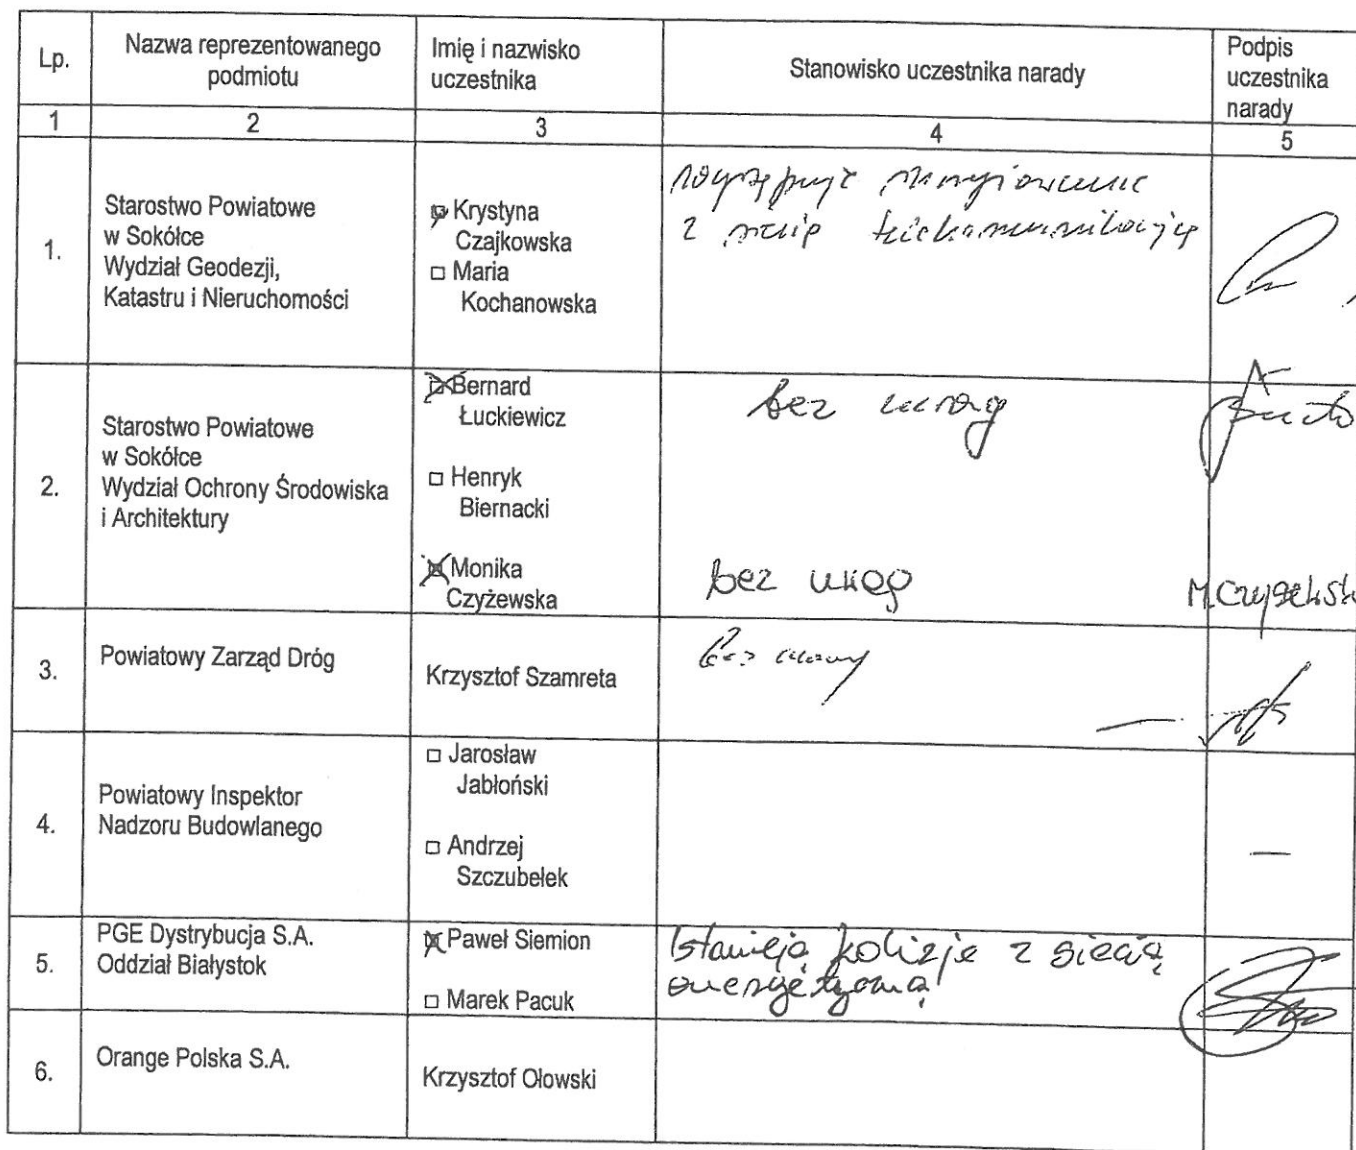 Lp.
Nazwa reprezentowanego
podmiotu
Imię i nazwisko
uczestnika
Stanowisko uczestnika narady
Podpis
uczestnika
narady
1
2
3
4
5
1.
Starostwo Powiatowe
w Sokółce
Wydział Geodezji,
Katastru i Nieruchomości
Krystyna
Czajkowska
Maria
Kochanowska
z
2.
Starostwo Powiatowe
w Sokółce
Wydział Ochrony Środowiska
i Architektury
Bernard
Łuckiewicz
Henryk
Biernacki
Monika
Czyżewska
bez uwag
bez uwag
3.
Powiatowy Zarząd Dróg
Krzysztof Szamreta
bez uwag
4.
Powiatowy Inspektor
Nadzoru Budowlanego
Jarosław
Jabłoński
Andrzej
Szczubełek
—
5.
PGE Dystrybucja S.A.
Oddział Białystok
Paweł Siemion
Marek Pacuk
Istnieją kolizje z siecią
energetyczną
6.
Orange Polska S.A.
Krzysztof Ołowski